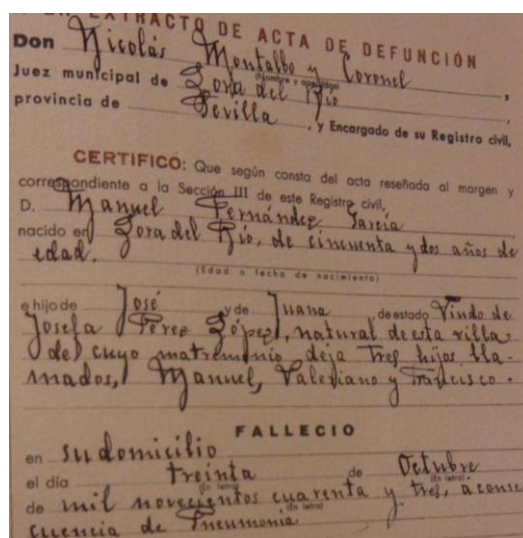 EXTRACTO DE ACTA DE DEFUNCIÓN
Don Nicolás Montalbo y Coronel,
(Nombre y apellidos)
Juez municipal de Lora del Río,
provincia de Sevilla, y Encargado de su Registro civil,
CERTIFICO: Que según consta del acta reseñada al margen y
correspondiente a la Sección III de este Registro civil,
D. Manuel Fernández García
nacido en Lora del Río, de cincuenta y dos años de
edad.
(Edad o fecha de nacimiento)
e hijo de José y de Juana de estado Viudo de
Josefa Pérez López, natural de esta villa
de cuyo matrimonio deja tres hijos lla-
mados, Manuel, Valeriano y Francisco.
FALLECIO
en su domicilio
el día treinta de Octubre
(En letra) (En letra)
de mil novecientos cuarenta y tres, a conse
(En letra)
cuencia de Pneumonia